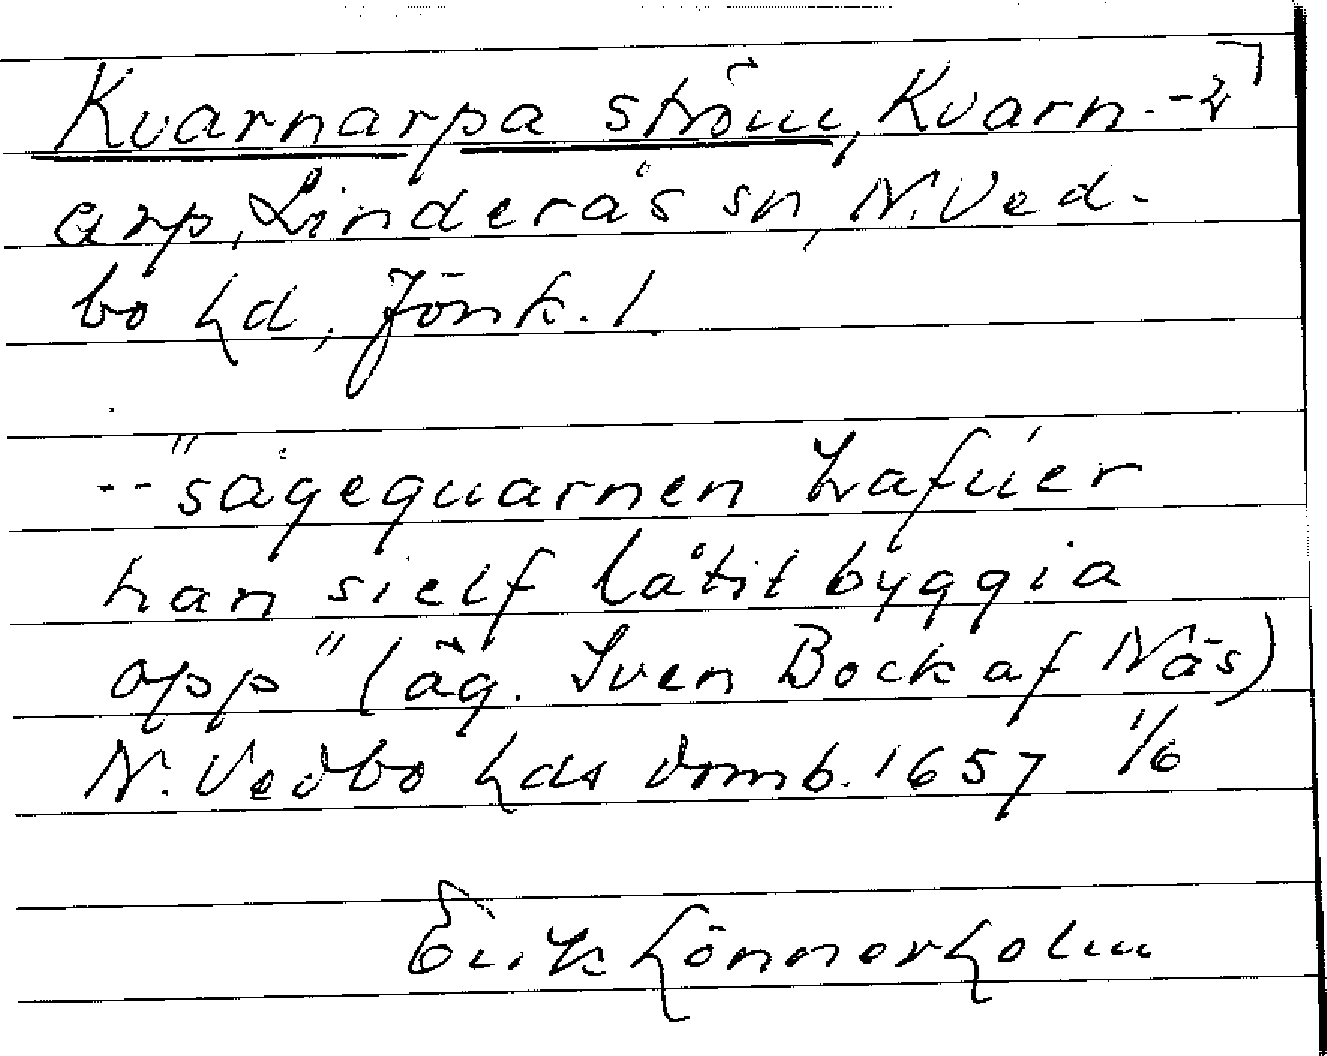 Kvarnarpa ström, Kvarn.-
arp, Linderås sn, N. Ved-
bo hd, Jönk. l
--"sågequarnen hafuer
han sielf låtit byggia
opp" (äg. Sven Bock af Näs)
N. Vedbo hds domb. 1657 1/6
Erik Lönnerholm